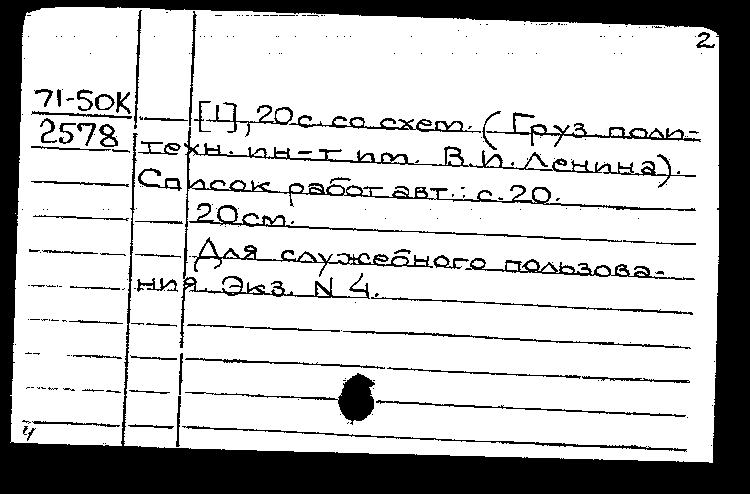 2
71-50К [1], 20с. со схем. (Груз. поли-
2578 техн. ин-т им. В.И. Ленина).
Список работ авт.: с. 20.
20см.
Для служебного пользова-
ния. Экз. N 4.